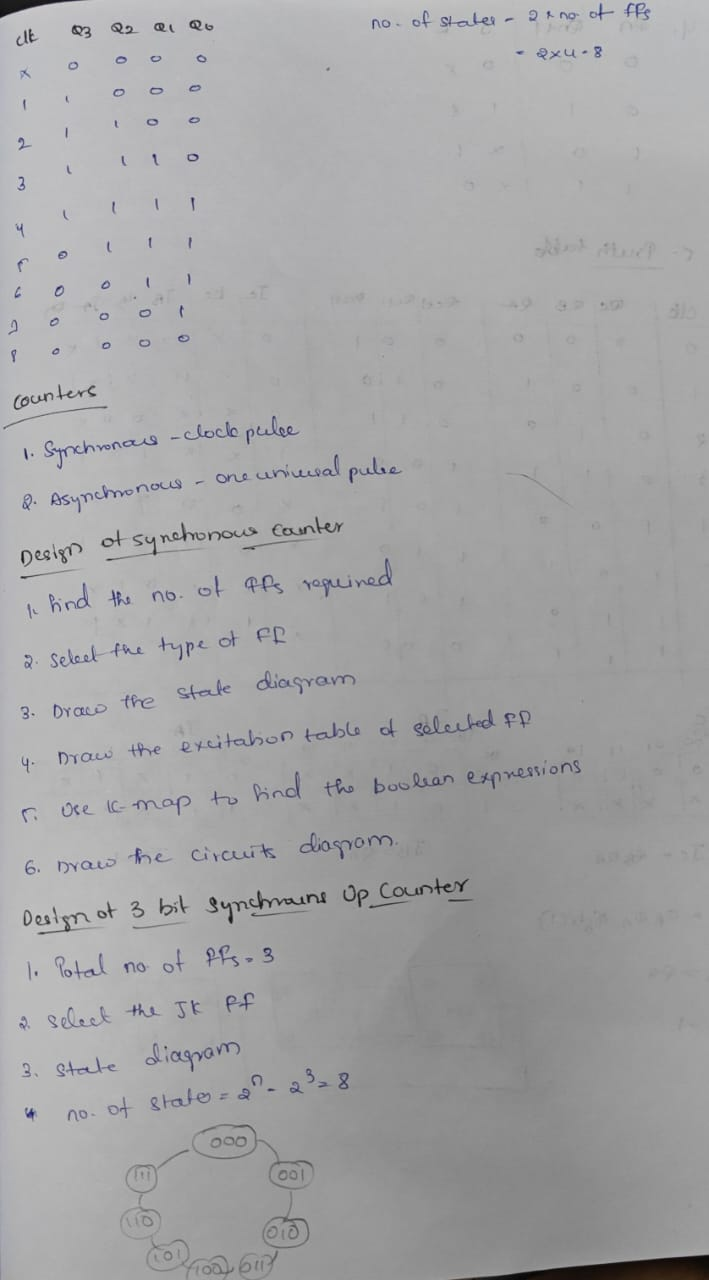 clk Q3 Q2 Q1 Q0
x 0 0 0 0
1 1 0 0 0
2 1 1 0 0
3 1 1 1 0
4 1 1 1 1
5 0 1 1 1
6 0 0 1 1
7 0 0 0 1
8 0 0 0 0
no. of states - 2 * no. of ffs
= 2x4 = 8
Counters
1. Synchronous - clock pulse
2. Asynchronous - one universal pulse
Design of synchonous Counter
1. find the no. of ffs required
2. Select the type of FF
3. Draw the state diagram
4. Draw the excitation table of selected FF
5. Use K-map to find the boolean expressions
6. Draw the circuits diagram.
Design of 3 bit Synchrouns Up Counter
1. Total no. of FFs = 3
2. select the JK FF
3. state diagram
4 no. of states = 2ⁿ = 2³ = 8
000
111 001
110 010
101 100 011